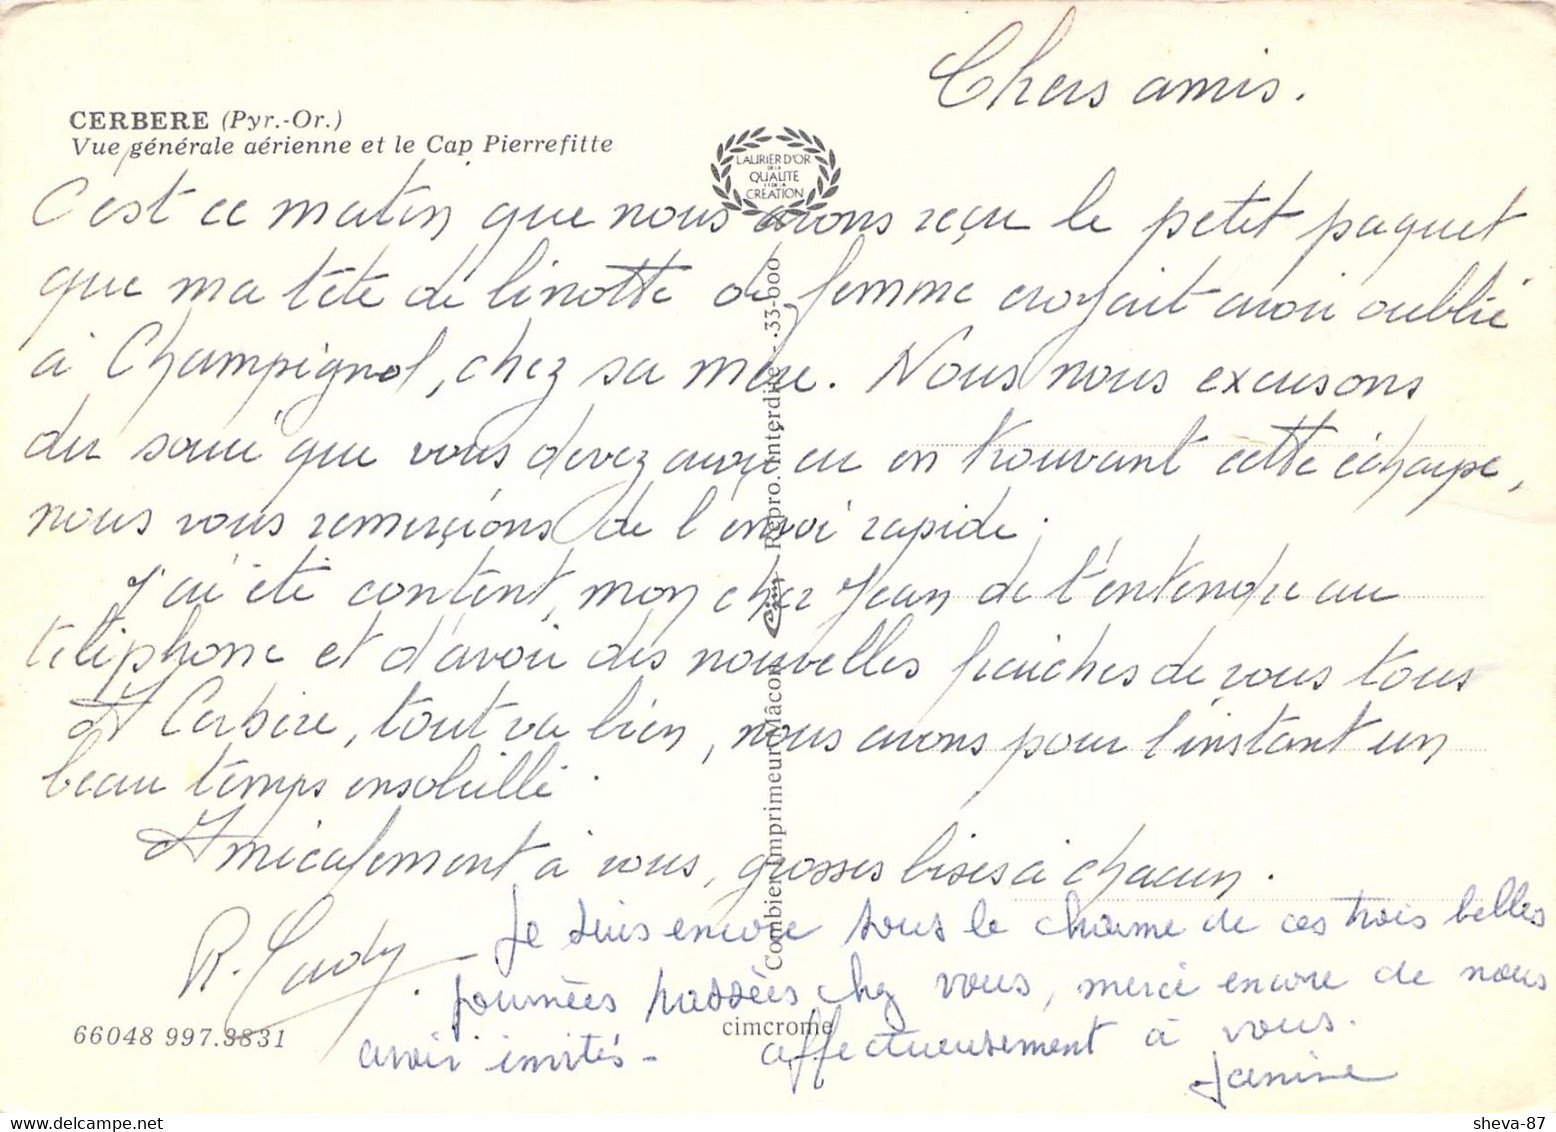 Chers amis.
CERBERE (Pyr.-Or.)
Vue générale aérienne et le Cap Pierrefitte
LAURIER D'OR
DE LA
QUALITE
ET DE LA
CRÉATION
C'est ce matin que nous avons reçu le petit paquet
que ma tête de linotte de femme croyait avoir oublié
à Champignol, chez sa mère. Nous nous excusons
du souci que vous devez avoir eu en trouvant cette écharpe,
nous vous remercions de l'envoi rapide.
J'ai été content, mon cher Jean de t'entendre au
téléphone et d'avoir des nouvelles fraîches de vous tous
A Cerbère, tout va bien, nous avons pour l'instant un
beau temps ensoleillé.
Amicalement à vous, grosses bises à chacun.
R.
Je suis encore sous le charme de ces trois belles
journées passées chez vous, merci encore de nous
avoir invités - affectueusement à vous.
Janine
66048 997.3831
cimcrome
Combier Imprimeur Mâcon Cim Repro. interdite - 33-600
https://www.delcampe.net
sheva-87